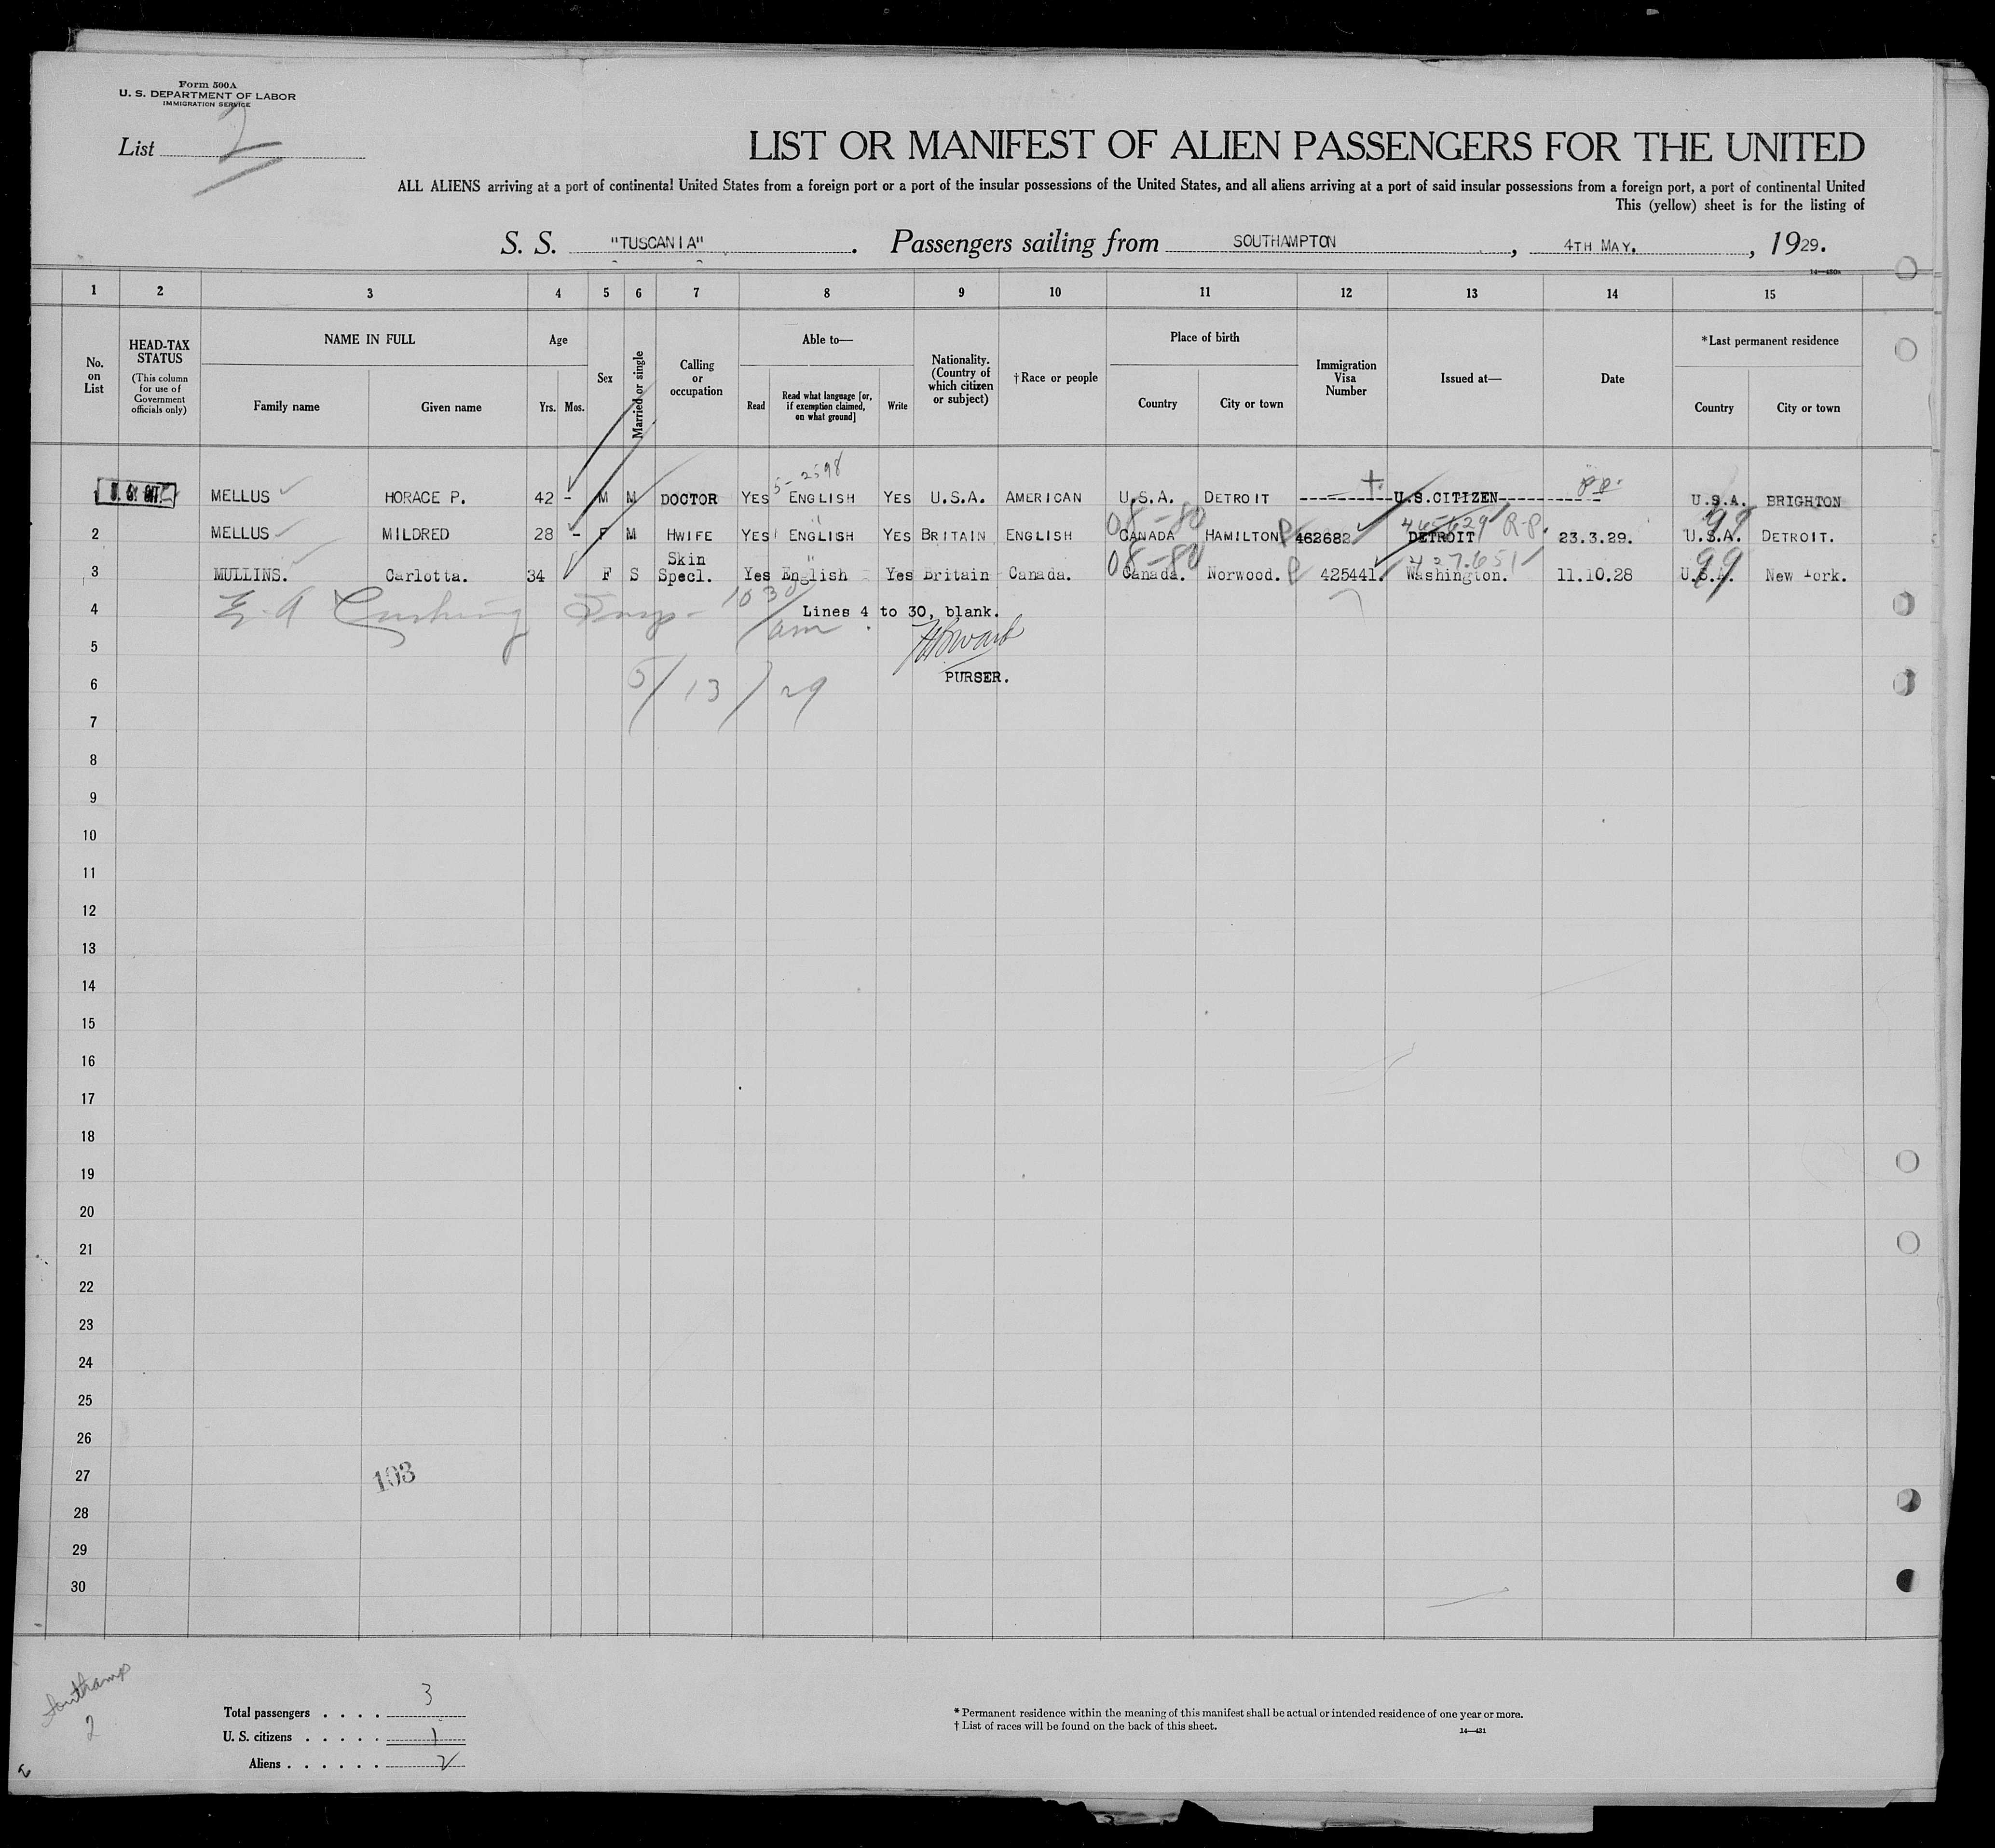 Form 500A
U. S. DEPARTMENT OF LABOR
IMMIGRATION SERVICE
List 2
LIST OR MANIFEST OF ALIEN PASSENGERS FOR THE UNITED
ALL ALIENS arriving at a port of continental United States from a foreign port or a port of the insular possessions of the United States, and all aliens arriving at a port of said insular possessions from a foreign port, a port of continental United
This (yellow) sheet is for the listing of
S. S. "TUSCANIA". Passengers sailing from SOUTHAMPTON, 4TH MAY., 1929.
1 2 3 4 5 6 7 8 9 10 11 12 13 14 15
No. on List
HEAD-TAX STATUS (This column for use of Government officials only)
NAME IN FULL
Family name Given name
Age
Yrs. Mos.
Sex
Married or single
Calling or occupation
Able to—
Read Read what language [or, if exemption claimed, on what ground] Write
Nationality. (Country of which citizen or subject)
†Race or people
Place of birth
Country City or town
Immigration Visa Number
Issued at—
Date
*Last permanent residence
Country City or town
5-2598
MELLUS HORACE P. 42 - M M DOCTOR YES ENGLISH YES U.S.A. AMERICAN U.S.A. DETROIT U.S.CITIZEN PP. U.S.A. BRIGHTON
08-80 R-P. 99
2 MELLUS MILDRED 28 - F M HWIFE YES ENGLISH YES BRITAIN ENGLISH CANADA HAMILTON 462682 DETROIT 23.3.29. U.S.A. DETROIT.
08-80 99
3 MULLINS. Carlotta. 34 F S Skin Specl. Yes English Yes Britain Canada. Canada. Norwood. 425441. Washington. 11.10.28 U.S.A. New York.
4 E. A Cushing Insp- 1030 am Lines 4 to 30, blank.
5
6 5/13/29 PURSER.
7
8
9
10
11
12
13
14
15
16
17
18
19
20
21
22
23
24
25
26
27 103
28
29
30
Southamp
2
Total passengers . . . . 3
U. S. citizens . . . . . 1
Aliens . . . . . . 2
* Permanent residence within the meaning of this manifest shall be actual or intended residence of one year or more.
† List of races will be found on the back of this sheet.
14—431